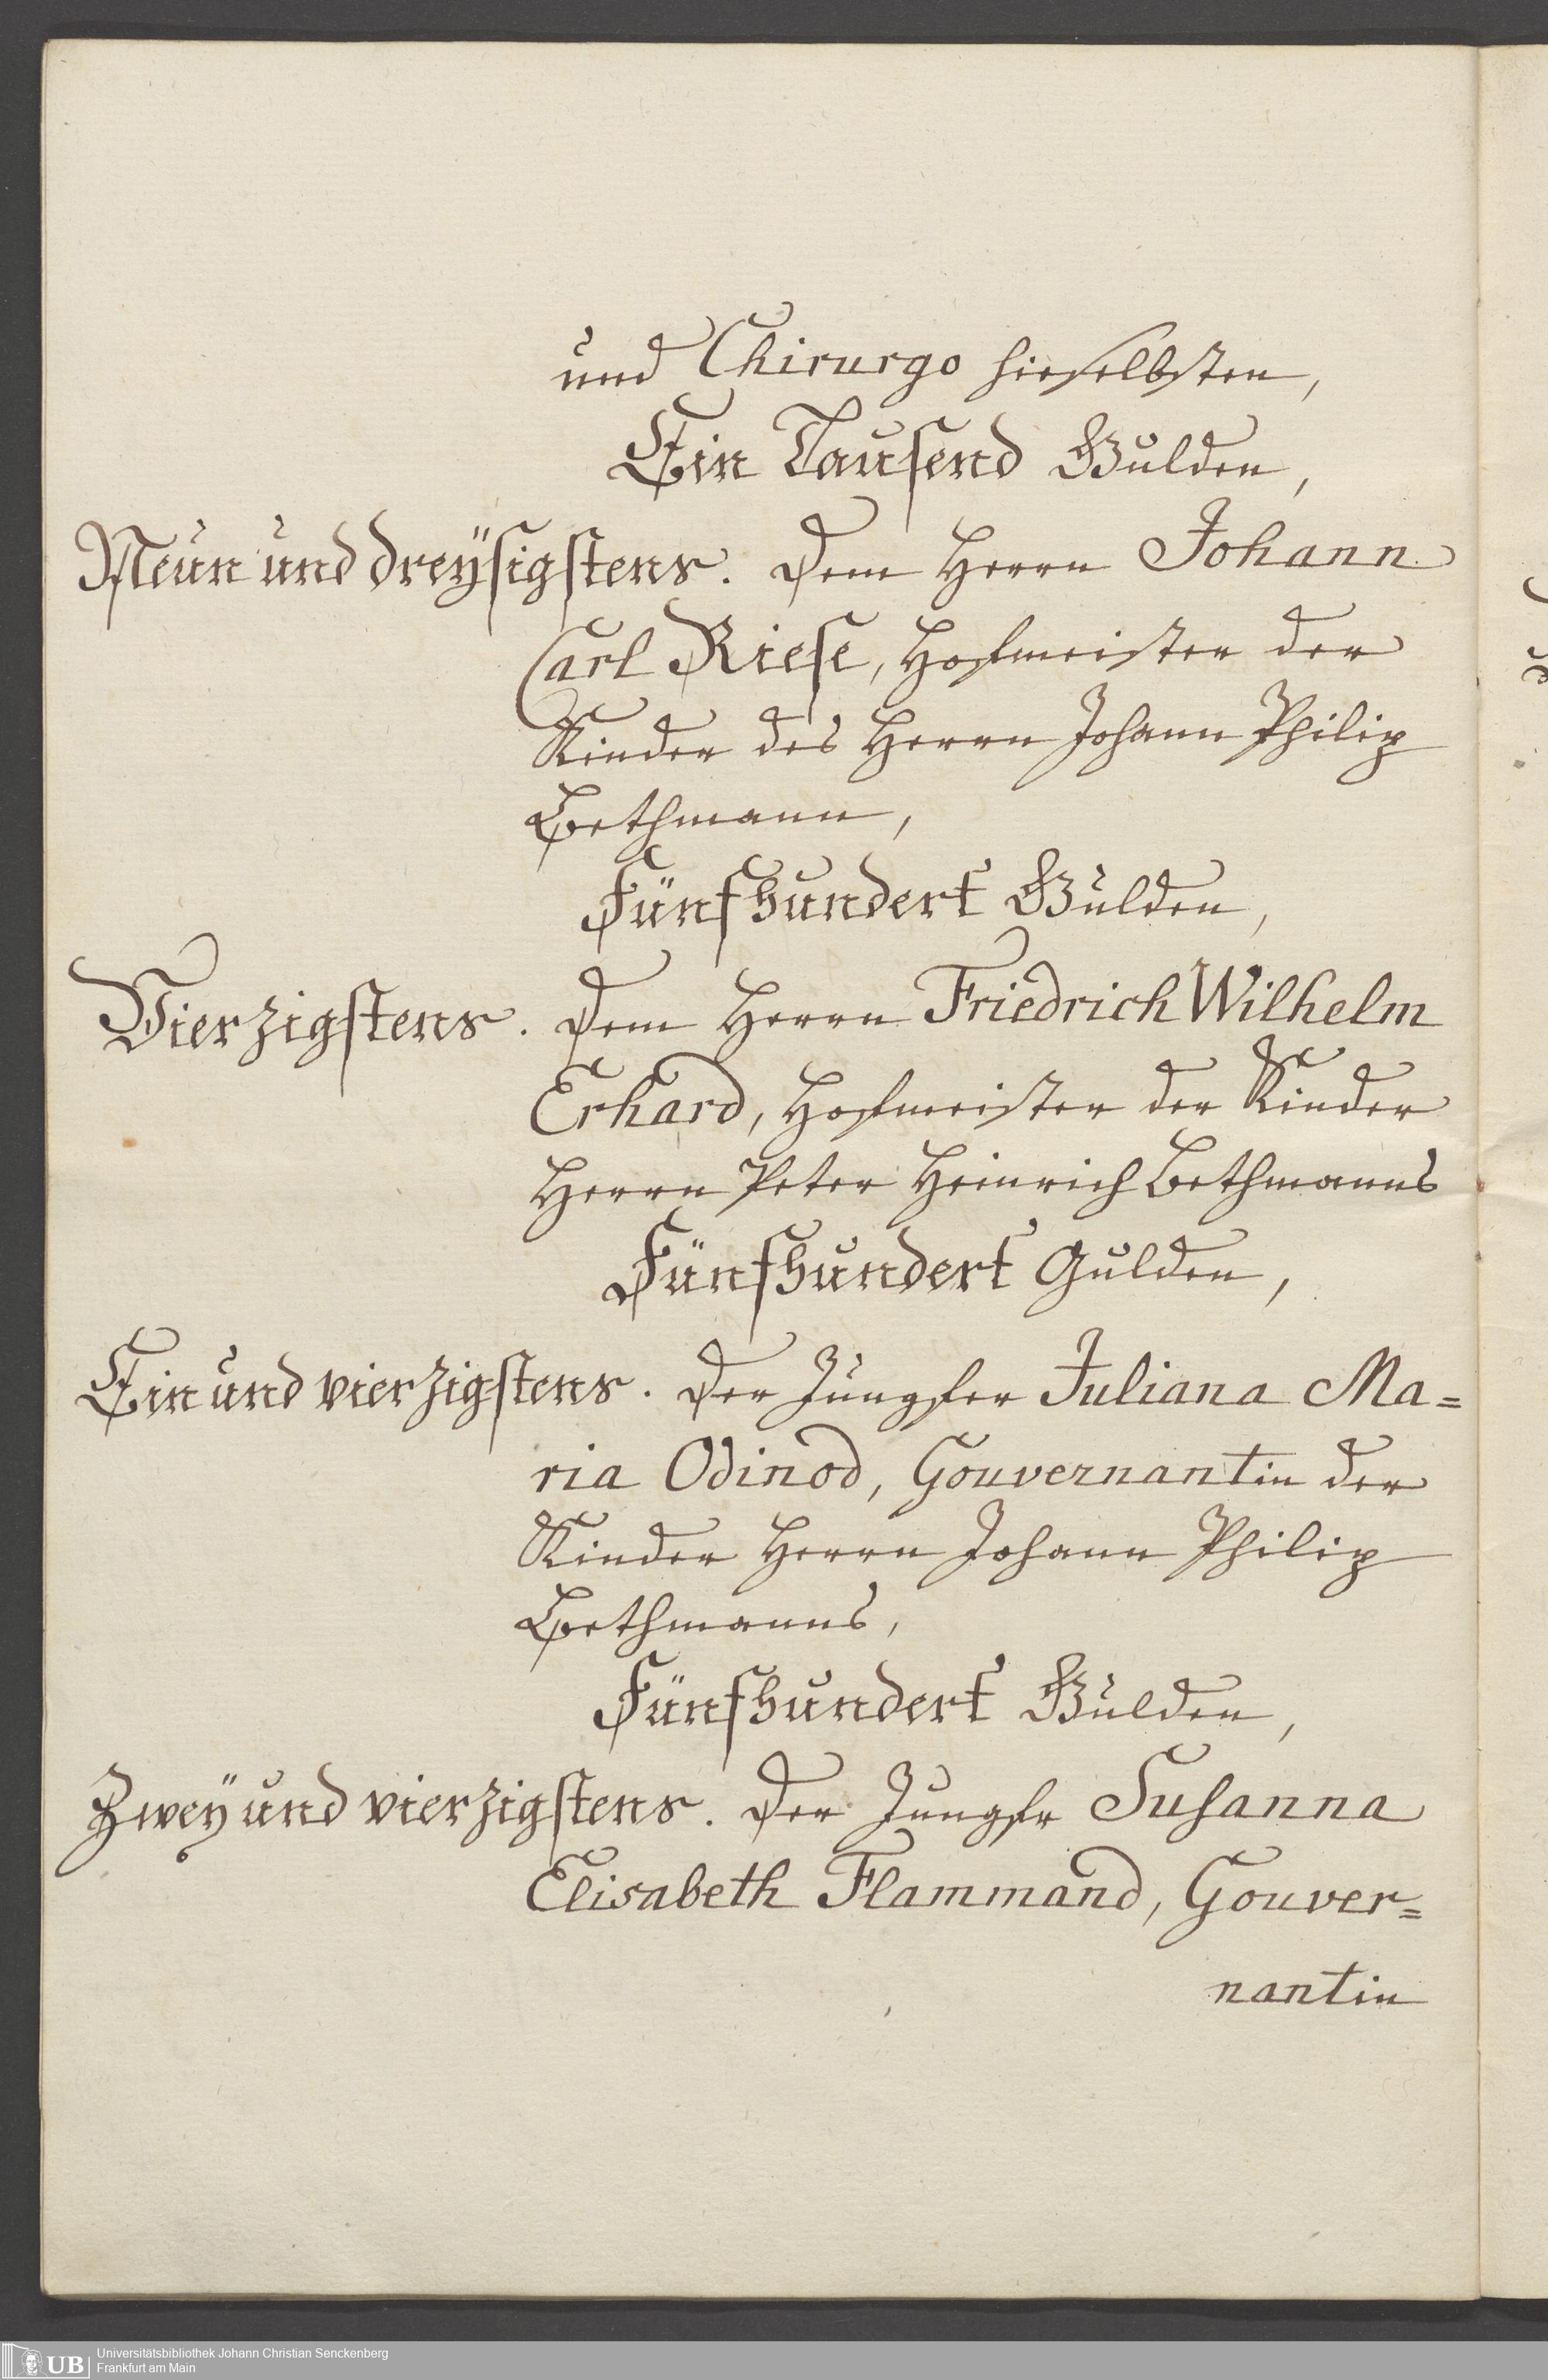 und Chirurgo hieselbsten,
Ein Tausend Gulden,
Neun und dreÿsigstens. Dem Herrn Johann
Carl Riese, Hofmeister der
Kinder des Herrn Johann Philip
Bethmann,
Fünfhundert Gulden,
Vierzigstens. Dem Herrn Friedrich Wilhelm
Erhard, Hofmeister der Kinder
Herrn Peter Heinrich Bethmanns
Fünfhundert Gulden,
Ein und vierzigstens. Der Jungfer Juliana Ma=
ria Odinod, Gouvernantin der
Kinder Herrn Johann Philip
Bethmanns,
Fünfhundert Gulden,
Zweÿ und vierzigstens. Der Jungfr Susanna
Elisabeth Flammand, Gouver=
nantin
UB Universitätsbibliothek Johann Christian Senckenberg
Frankfurt am Main